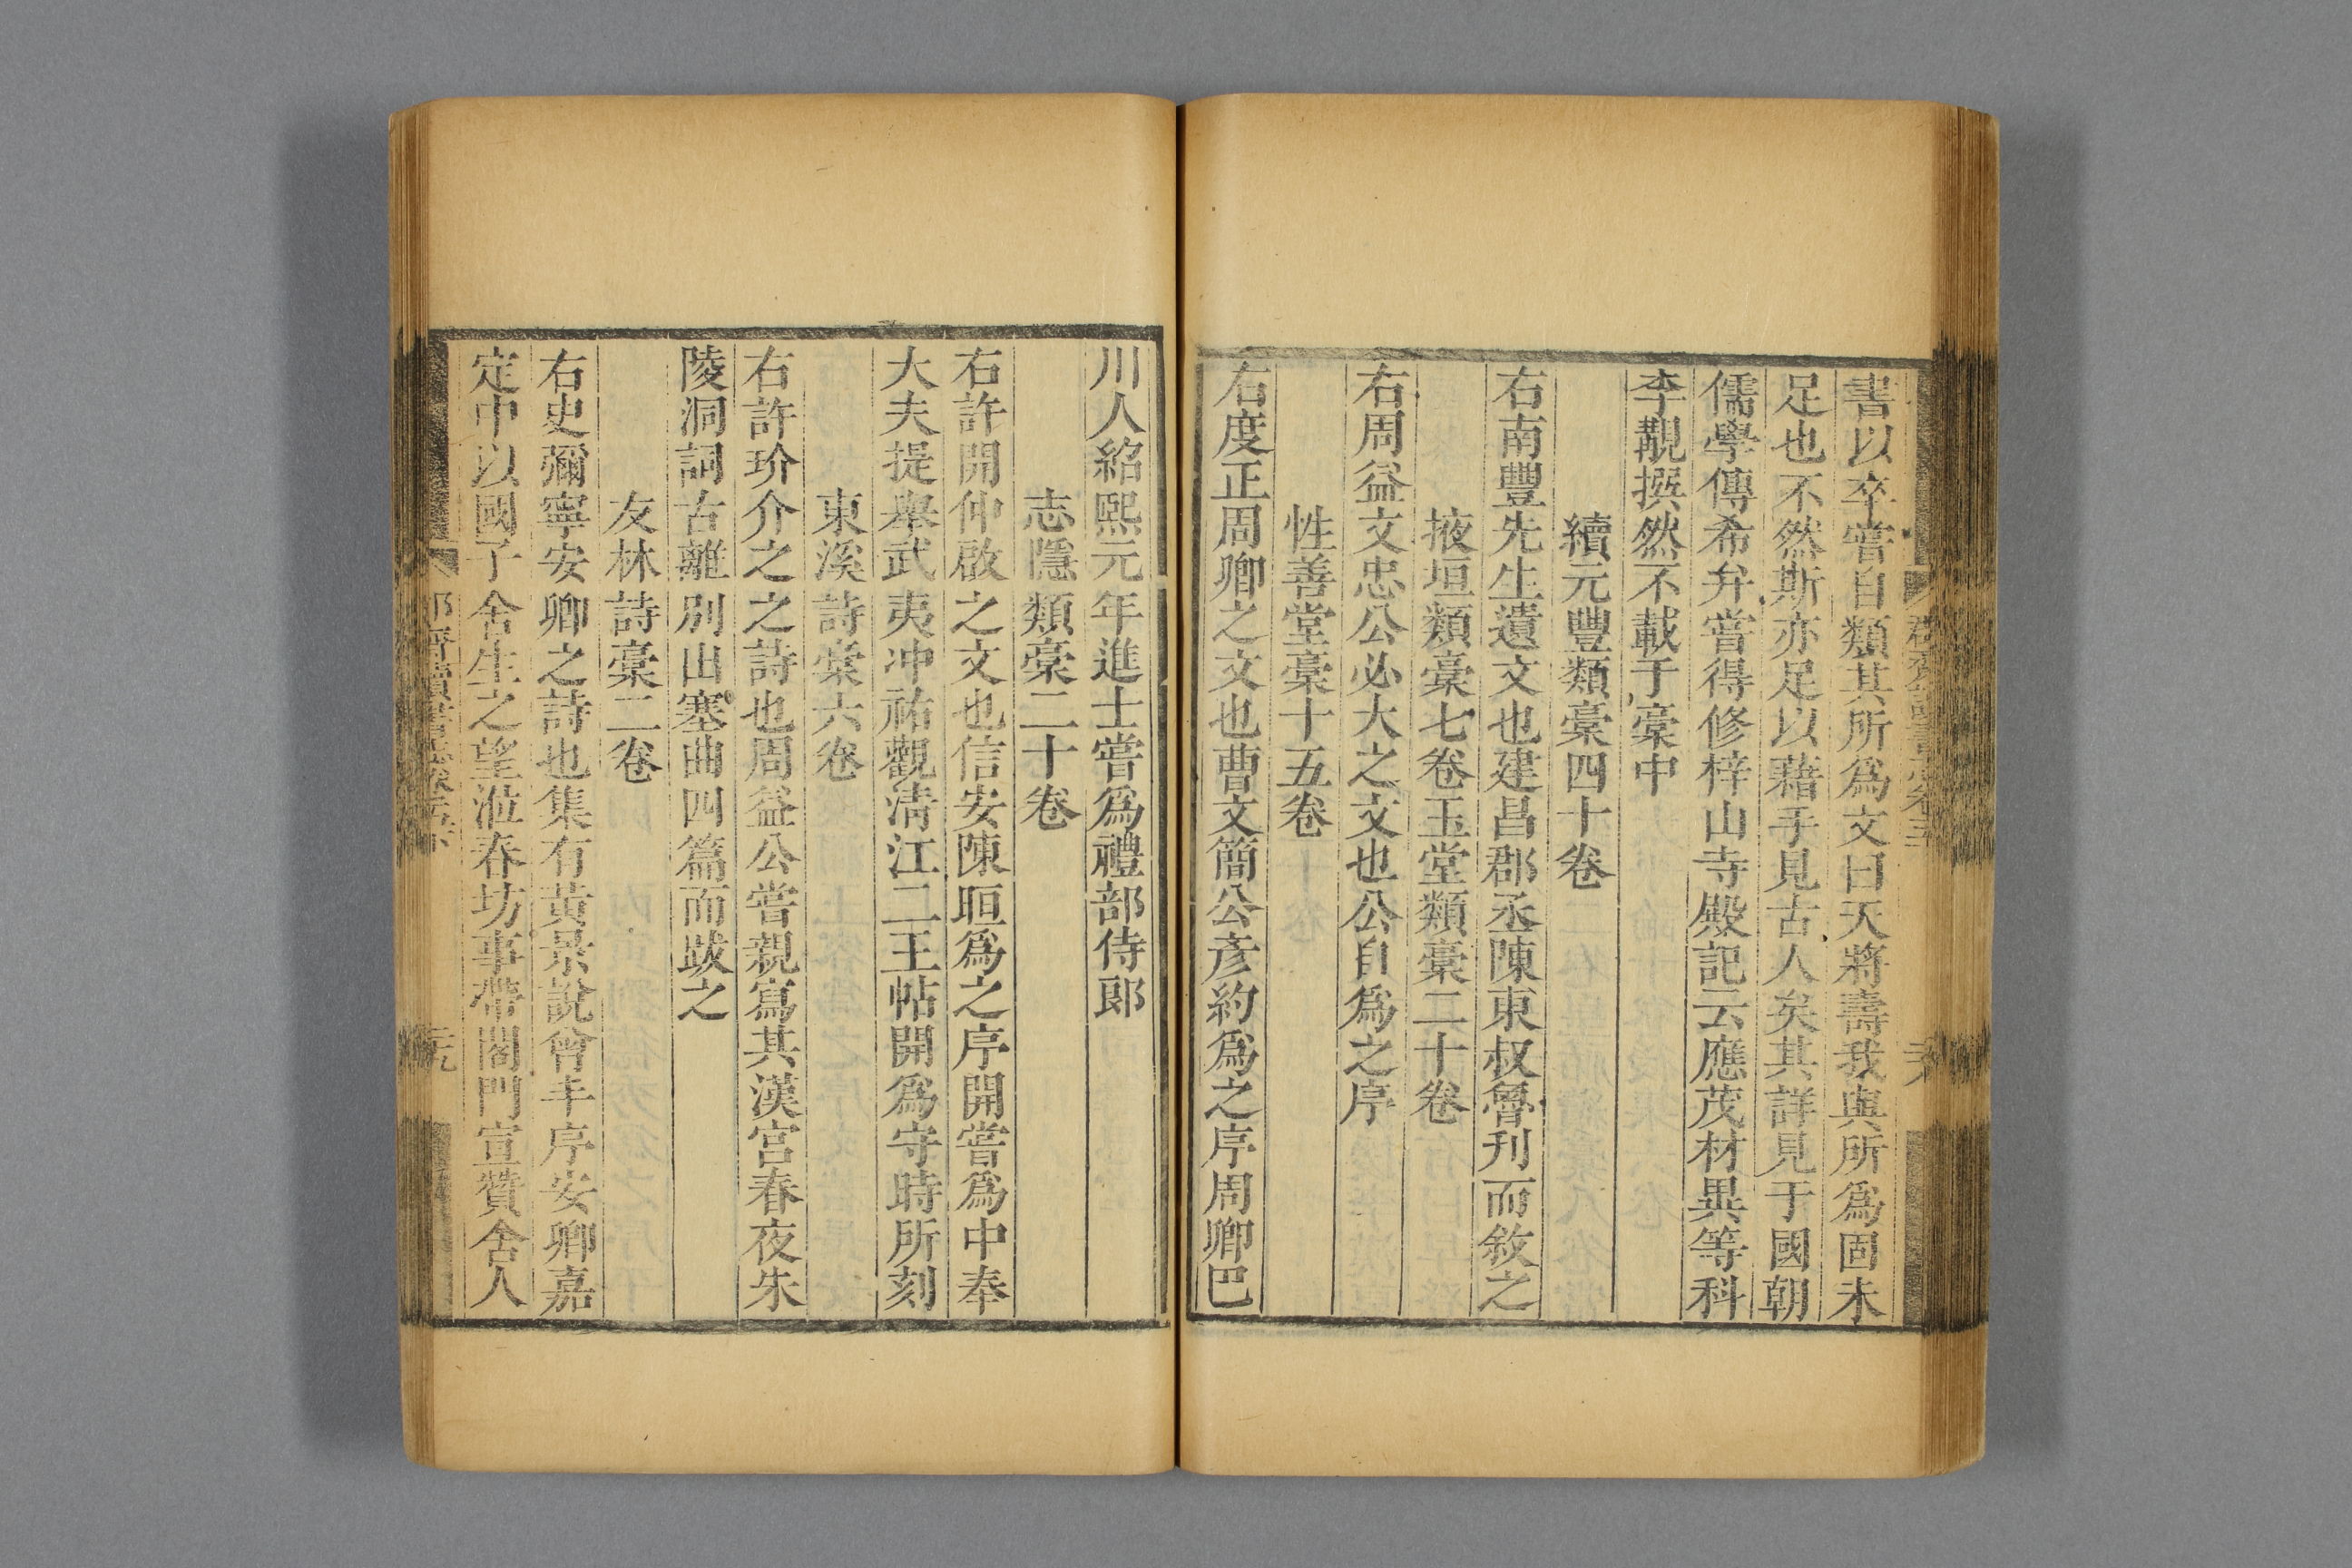 書以卒嘗自類其所爲文曰天將壽我與所爲固未
足也不然斯亦足以藉手見古人矣其詳見于國朝
儒學傳希弁嘗得修梓山寺殿記云應茂材異等科
李覯撰然不載于稾中
續元豐類稾四十卷
右南豐先生遺文也建昌郡丞陳東叔魯刊而敘之
掖垣類稾七卷玉堂類稾二十卷
右周益文忠公必大之文也公自爲之序
性善堂稾十五卷
右度正周卿之文也曹文簡公彥約爲之序周卿巴
川人紹熙元年進士嘗爲禮部侍郎
志隱類稾二十卷
右許開仲啟之文也信安陳晅爲之序開嘗爲中奉
大夫提舉武夷冲祐觀清江二王帖開爲守時所刻
東溪詩稾六卷
右許玠介之之詩也周益公嘗親寫其漢宮春夜朱
陵洞詞古離別出塞曲四篇而跋之
友林詩稾二卷
右史彌寧安卿之詩也集有黃景說曾丰序安卿嘉
定中以國子舍生之望涖春坊事帶閤門宣贊舍人